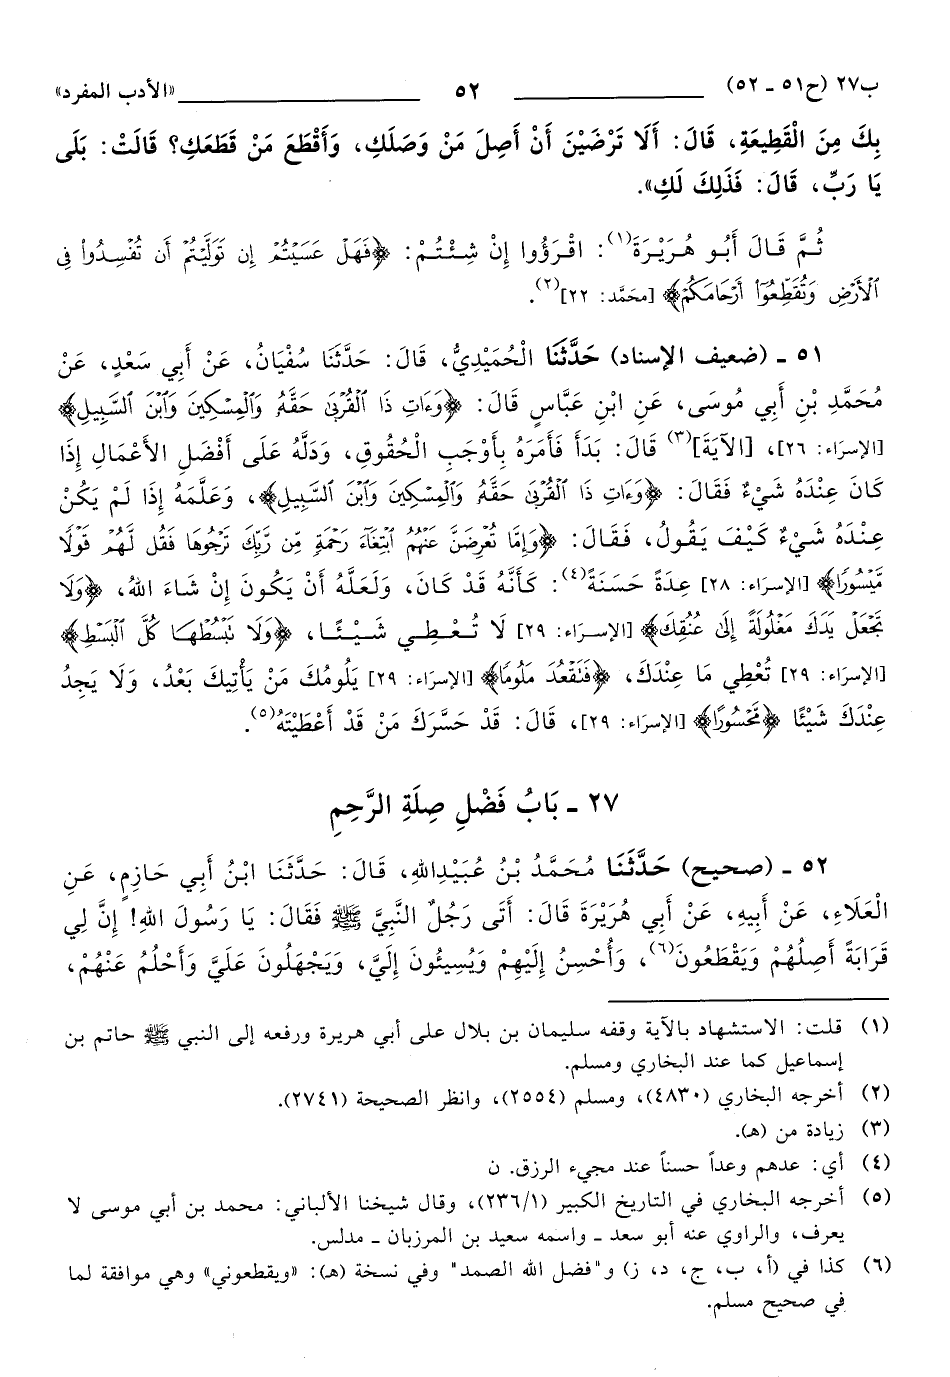 ب٢٧ (ح٥١ - ٥٢) ٥٢ «الأدب المفرد»
بِكَ مِنَ الْقَطِيعَةِ، قَالَ: أَلَا تَرْضَيْنَ أَنْ أَصِلَ مَنْ وَصَلَكِ، وَأَقْطَعَ مَنْ قَطَعَكِ؟ قَالَتْ: بَلَى
يَا رَبِّ، قَالَ: فَذَلِكَ لَكِ».
ثُمَّ قَالَ أَبُو هُرَيْرَةَ(١): اقْرَؤُوا إِنْ شِئْتُمْ: ﴿فَهَلْ عَسَيْتُمْ إِن تَوَلَّيْتُمْ أَن تُفْسِدُوا۟ فِى
ٱلْأَرْضِ وَتُقَطِّعُوٓا۟ أَرْحَامَكُمْ﴾ [محَمَّد: ٢٢](٢).
٥١ - (ضعيف الإسناد) حَدَّثَنَا الْحُمَيْدِيُّ، قَالَ: حَدَّثَنَا سُفْيَانُ، عَنْ أَبِي سَعْدٍ، عَنْ
مُحَمَّدِ بْنِ أَبِي مُوسَى، عَنِ ابْنِ عَبَّاسٍ قَالَ: ﴿وَءَاتِ ذَا ٱلْقُرْبَىٰ حَقَّهُۥ وَٱلْمِسْكِينَ وَٱبْنَ ٱلسَّبِيلِ﴾
[الإسرَاء: ٢٦]، [الآيَةَ](٣) قَالَ: بَدَأَ فَأَمَرَهُ بِأَوْجَبِ الْحُقُوقِ، وَدَلَّهُ عَلَى أَفْضَلِ الأَعْمَالِ إِذَا
كَانَ عِنْدَهُ شَيْءٌ فَقَالَ: ﴿وَءَاتِ ذَا ٱلْقُرْبَىٰ حَقَّهُۥ وَٱلْمِسْكِينَ وَٱبْنَ ٱلسَّبِيلِ﴾، وَعَلَّمَهُ إِذَا لَمْ يَكُنْ
عِنْدَهُ شَيْءٌ كَيْفَ يَقُولُ، فَقَالَ: ﴿وَإِمَّا تُعْرِضَنَّ عَنْهُمُ ٱبْتِغَآءَ رَحْمَةٍ مِّن رَّبِّكَ تَرْجُوهَا فَقُل لَّهُمْ قَوْلًا
مَّيْسُورًا﴾ [الإسرَاء: ٢٨] عِدَةً حَسَنَةً(٤): كَأَنَّهُ قَدْ كَانَ، وَلَعَلَّهُ أَنْ يَكُونَ إِنْ شَاءَ اللهُ، ﴿وَلَا
تَجْعَلْ يَدَكَ مَغْلُولَةً إِلَىٰ عُنُقِكَ﴾ [الإسرَاء: ٢٩] لَا تُعْطِي شَيْئًا، ﴿وَلَا تَبْسُطْهَا كُلَّ ٱلْبَسْطِ﴾
[الإسرَاء: ٢٩] تُعْطِي مَا عِنْدَكَ، ﴿فَتَقْعُدَ مَلُومًا﴾ [الإسرَاء: ٢٩] يَلُومُكَ مَنْ يَأْتِيكَ بَعْدُ، وَلَا يَجِدُ
عِنْدَكَ شَيْئًا ﴿مَّحْسُورًا﴾ [الإسرَاء: ٢٩]، قَالَ: قَدْ حَسَّرَكَ مَنْ قَدْ أَعْطَيْتَهُ(٥).
٢٧ - بَابُ فَضْلِ صِلَةِ الرَّحِمِ
٥٢ - (صحيح) حَدَّثَنَا مُحَمَّدُ بْنُ عُبَيْدِاللهِ، قَالَ: حَدَّثَنَا ابْنُ أَبِي حَازِمٍ، عَنِ
الْعَلَاءِ، عَنْ أَبِيهِ، عَنْ أَبِي هُرَيْرَةَ قَالَ: أَتَى رَجُلٌ النَّبِيَّ ﷺ فَقَالَ: يَا رَسُولَ اللهِ! إِنَّ لِي
قَرَابَةً أَصِلُهُمْ وَيَقْطَعُونَ(٦)، وَأُحْسِنُ إِلَيْهِمْ وَيُسِيئُونَ إِلَيَّ، وَيَجْهَلُونَ عَلَيَّ وَأَحْلُمُ عَنْهُمْ،
(١) قلت: الاستشهاد بالآية وقفه سليمان بن بلال على أبي هريرة ورفعه إلى النبي ﷺ حاتم بن
إسماعيل كما عند البخاري ومسلم.
(٢) أخرجه البخاري (٤٨٣٠)، ومسلم (٢٥٥٤)، وانظر الصحيحة (٢٧٤١).
(٣) زيادة من (هـ).
(٤) أي: عدهم وعداً حسناً عند مجيء الرزق. ن
(٥) أخرجه البخاري في التاريخ الكبير (٢٣٦/١)، وقال شيخنا الألباني: محمد بن أبي موسى لا
يعرف، والراوي عنه أبو سعد - واسمه سعيد بن المرزبان - مدلس.
(٦) كذا في (أ، ب، ج، د، ز) و"فضل الله الصمد" وفي نسخة (هـ): «ويقطعوني» وهي موافقة لما
في صحيح مسلم.